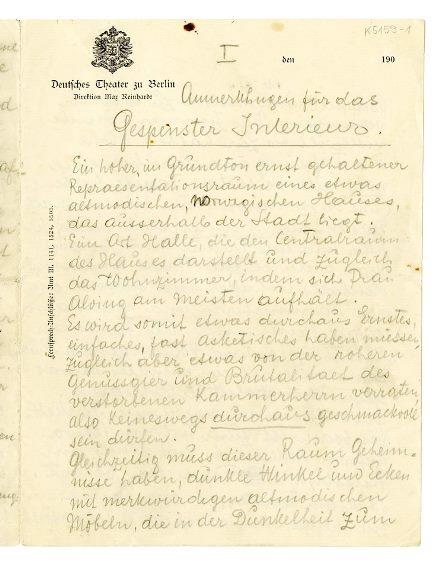 K5159-1
I
den 190
Deutsches Theater zu Berlin
Direktion Max Reinhardt
Anmerkungen für das
Gespenster Interieur.
Ein hoher, im Grundton ernst gehaltener
Repraesentationsraum eines etwas
altmodischen, norwegischen Hauses,
das ausserhalb der Stadt liegt.
Eine Art Halle, die den Centralraum
des Hauses darstellt und zugleich
das Wohnzimmer, indem sich Frau
Alving am meisten aufhält.
Es wird somit etwas durchaus Ernstes,
einfaches, fast asketisches haben müssen,
zugleich aber etwas von der roheren
Genussgier und Brutalitaet des
verstorbenen Kammerherrn verraten,
also keineswegs durchaus geschmackvoll
sein dürfen.
Gleichzeitig muss dieser Raum Geheim-
nisse haben, dunkle Winkel und Ecken
mit merkwürdigen altmodischen
Möbeln, die in der Dunkelheit zum
Fernsprech-Anschlüsse: Amt III, 1141, 1524,